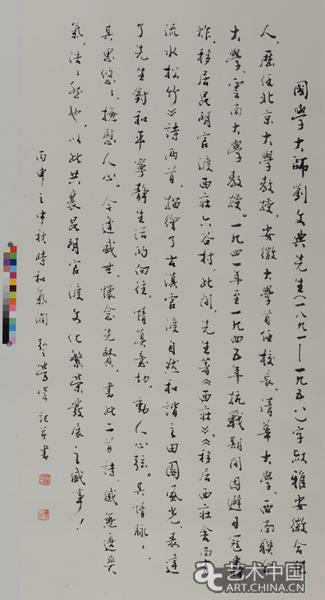 國學大師劉文典先生(一八九一—一九五八)字叔雅安徽合肥
人,歷任北京大學教授,安徽大學首任校長,清華大學,西南聯
大學,雲南大學教授。一九四一年至一九四五年抗戰期間因避日寇轟
炸,移居昆明官渡西莊六谷村,此間,先生著《西莊》、《移居西莊舍南
流水松竹》詩兩首,描繪了古滇官渡自然和諧之田園風光,表達
了先生對和平寧靜生活的向往,情真意切,動人心弦。其情脈脈,
其思悠悠,撫慰人心。今逢盛世,懷念先賢,書此二首詩感
氣,浩浩然也,以此共襄昆明官渡文化繁榮發展之盛事!
丙申之中秋時和氣潤 記并書
艺术中国
ART.CHINA.CN